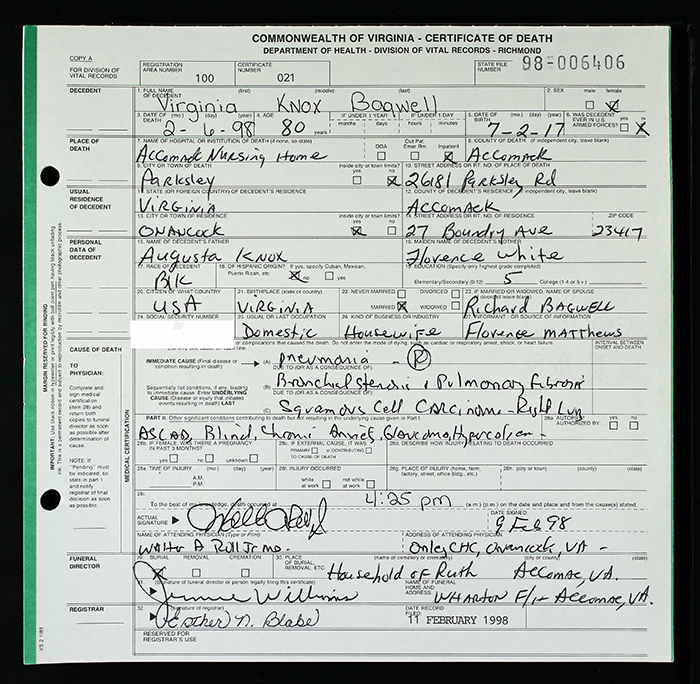 COMMONWEALTH OF VIRGINIA - CERTIFICATE OF DEATH
DEPARTMENT OF HEALTH - DIVISION OF VITAL RECORDS - RICHMOND
COPY A
FOR DIVISION OF VITAL RECORDS
REGISTRATION AREA NUMBER 100
CERTIFICATE NUMBER 021
STATE FILE NUMBER 98-006406
DECEDENT
1. FULL NAME OF DECEDENT (first) (middle) (last)
Virginia Knox Bagwell
2. SEX male female
3. DATE OF DEATH (mo.) (day) (year)
2-6-98
4. AGE 80 years
IF UNDER 1 YEAR months days
IF UNDER 1 DAY hours minutes
5. DATE OF BIRTH (mo.) (day) (year)
7-2-17
6. WAS DECEDENT EVER IN U.S. ARMED FORCES? yes no
PLACE OF DEATH
7. NAME OF HOSPITAL OR INSTITUTION OF DEATH (if none, so state)
Accomack Nursing Home
DOA Out Pat. Emer Rm Inpatient
8. COUNTY OF DEATH (if independent city, leave blank)
ACCOMACK
9. CITY OR TOWN OF DEATH inside city or town limits? yes no
Parksley
10. STREET ADDRESS OR RT. NO. OF PLACE OF DEATH
26181 Parksley Rd
USUAL RESIDENCE OF DECEDENT
11. STATE (OR FOREIGN COUNTRY) OF DECEDENT'S RESIDENCE
VIRGINIA
12. COUNTY OF DECEDENT'S RESIDENCE (if independent city, leave blank)
ACCOMACK
13. CITY OR TOWN OF RESIDENCE inside city or town limits? yes no
ONANCOCK
14. STREET ADDRESS OR RT. NO. OF RESIDENCE ZIP CODE
27 Boundry Ave 23417
PERSONAL DATA OF DECEDENT
15. NAME OF DECEDENT'S FATHER
Augusta Knox
16. MAIDEN NAME OF DECEDENT'S MOTHER
Florence White
17. RACE OF DECEDENT
Blk
18. OF HISPANIC ORIGIN? If yes, specify Cuban, Mexican, Puerto Rican, etc. no yes
19. EDUCATION (Specify only highest grade completed)
Elementary/Secondary (0-12) 5 College (1-4 or 5+)
20. CITIZEN OF WHAT COUNTRY
USA
21. BIRTHPLACE (state or country)
VIRGINIA
22. NEVER MARRIED DIVORCED
MARRIED WIDOWED
23. IF MARRIED OR WIDOWED, NAME OF SPOUSE (if divorced leave blank)
Richard BAGWELL
24. SOCIAL SECURITY NUMBER
25. USUAL OR LAST OCCUPATION
Domestic
26. KIND OF BUSINESS OR INDUSTRY
Housewife
27. INFORMANT - OR SOURCE OF INFORMATION
Florence Matthews
CAUSE OF DEATH
TO PHYSICIAN:
Complete and sign medical certification (item 28) and return both copies to funeral director as soon as possible after determination of cause.
NOTE: If "Pending" must be indicated, so state in part 1 and notify registrar of final decision as soon as possible.
MARGIN RESERVED FOR BINDING
MEDICAL CERTIFICATION
or complications that caused the death. Do not enter the mode of dying, such as cardiac or respiratory arrest, shock, or heart failure.
INTERVAL BETWEEN ONSET AND DEATH
IMMEDIATE CAUSE (Final disease or condition resulting in death)
(A) Pneumonia - (P)
DUE TO (OR AS A CONSEQUENCE OF):
Sequentially list conditions, if any, leading to immediate cause. Enter UNDERLYING CAUSE (Disease or injury that initiated events resulting in death) LAST
(B) Bronchial stenosis & Pulmonary Fibrosis
DUE TO (OR AS A CONSEQUENCE OF):
(C) Squamous Cell Carcinoma Right Lung
PART II. Other significant conditions contributing to death but not resulting in the underlying cause given in Part I
ASCAD, Blind, Chronic
28a. AUTOPSY? yes no
AUTHORIZED BY:
28b. IF FEMALE, WAS THERE A PREGNANCY IN PAST 3 MONTHS? yes no unknown
28c. IF EXTERNAL CAUSE, IT WAS PRIMARY or CONTRIBUTING TO CAUSE OF DEATH
28d. DESCRIBE HOW INJURY RELATING TO DEATH OCCURRED
28e. TIME OF INJURY (mo.) (day) (year) A.M. P.M.
28f. INJURY OCCURRED while at work not while at work
28g. PLACE OF INJURY (home, farm, factory, street, office bldg., etc.)
28h. (city or town) (county) (state)
To the best of my knowledge, death occurred at 4:25 pm (a.m.) (p.m.) on the date and place and from the cause(s) stated.
ACTUAL SIGNATURE
DATE SIGNED:
9 Feb 98
NAME OF ATTENDING PHYSICIAN (Type or Print)
ADDRESS OF ATTENDING PHYSICIAN
Onley CHC, Onancock, VA -
FUNERAL DIRECTOR
29. BURIAL REMOVAL CREMATION
30. PLACE OF BURIAL, REMOVAL, ETC. (name of cemetery or crematory) (city or county) (state)
Household of Ruth Accomac, VA.
31. (signature of funeral director or person legally filing this certificate)
Jimmie Williams
NAME OF FUNERAL HOME AND ADDRESS:
WHARTON F/H Accomac, VA.
REGISTRAR
32. (signature of registrar)
Esther N. Blake
DATE RECORD FILED:
11 FEBRUARY 1998
RESERVED FOR REGISTRAR'S USE
VS 2 1/89